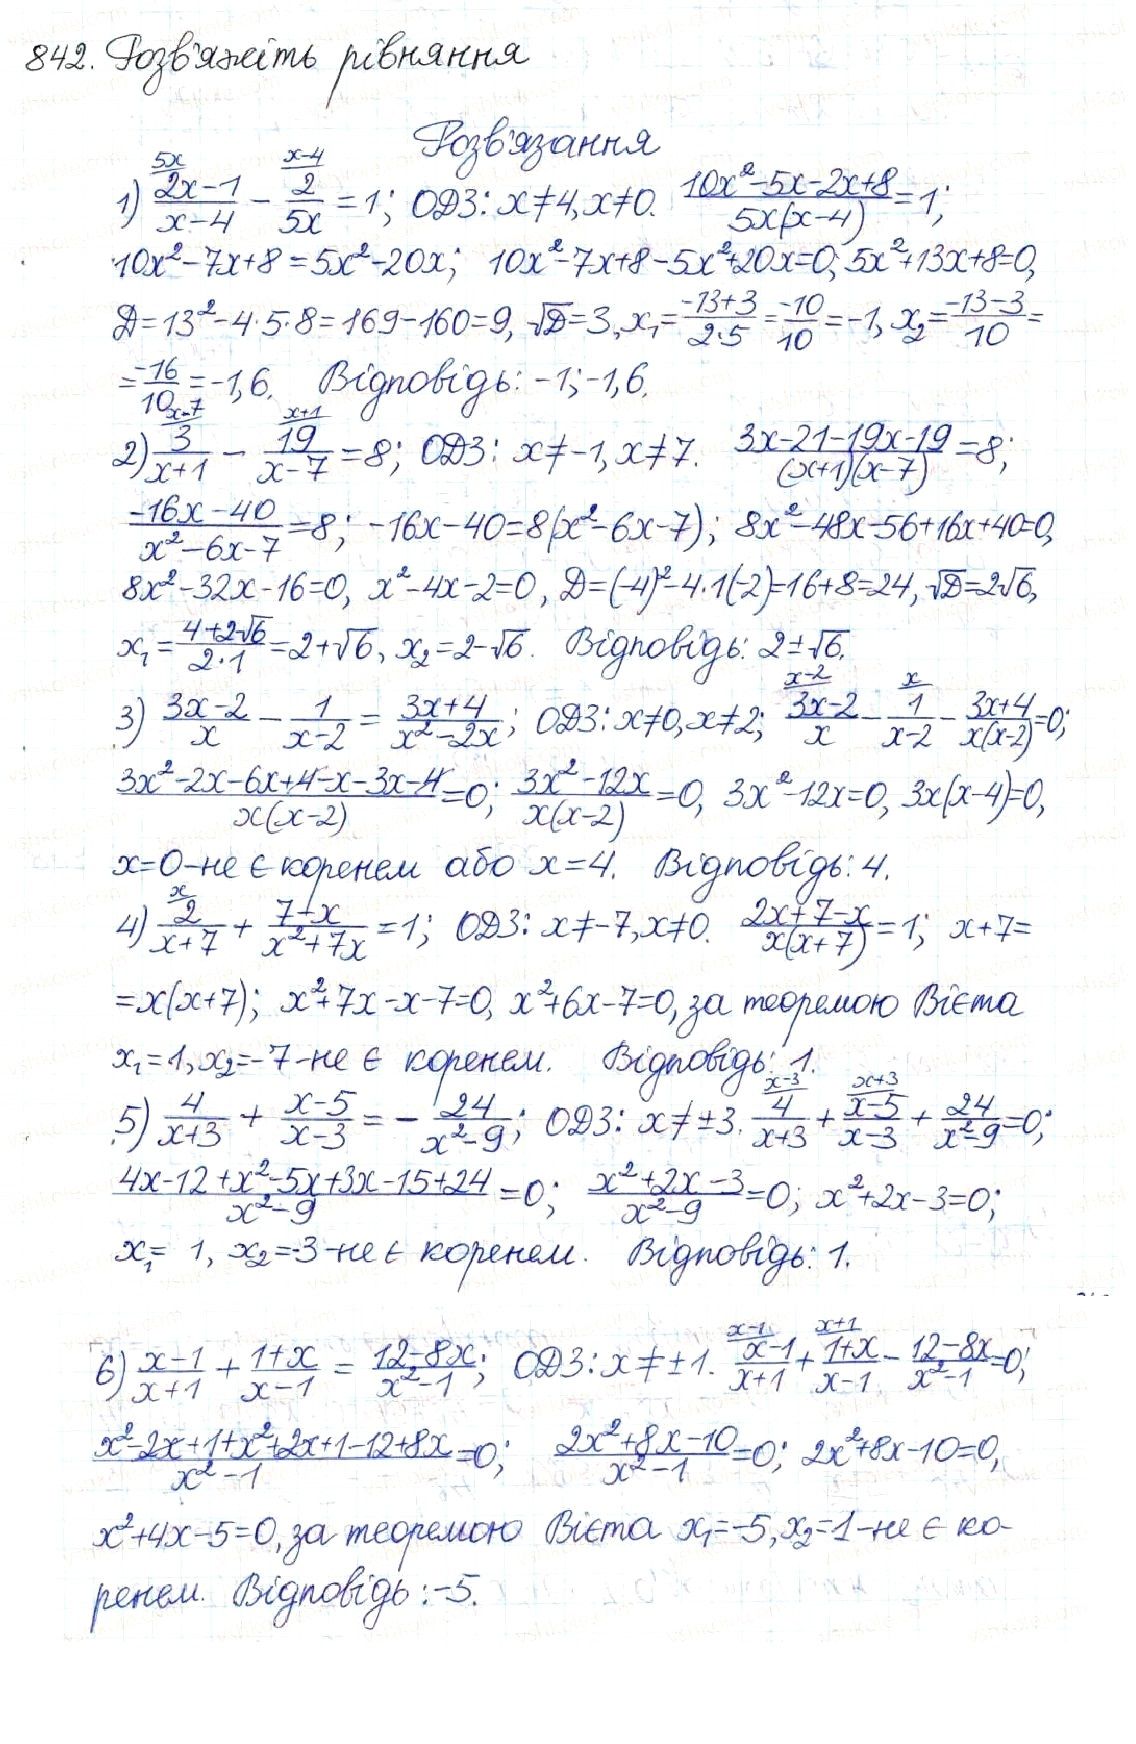 842. Розв'яжіть рівняння
Розв'язання
1) (2x-1)/(x-4) ^(5x) - 2/(5x) ^(x-4) = 1; ОДЗ: x≠4, x≠0. (10x²-5x-2x+8)/(5x(x-4)) = 1;
10x²-7x+8=5x²-20x; 10x²-7x+8-5x²+20x=0; 5x²+13x+8=0,
D=13²-4·5·8=169-160=9, √D=3, x₁=(-13+3)/(2·5)=(-10)/10=-1, x₂=(-13-3)/10=
=(-16)/10=-1,6. Відповідь: -1; -1,6.
2) 3/(x+1) ^(x-7) - 19/(x-7) ^(x+1) = 8; ОДЗ: x≠-1, x≠7. (3x-21-19x-19)/((x+1)(x-7)) = 8;
(-16x-40)/(x²-6x-7) = 8; -16x-40=8(x²-6x-7); 8x²-48x-56+16x+40=0,
8x²-32x-16=0, x²-4x-2=0, D=(-4)²-4·1(-2)=16+8=24, √D=2√6,
x₁=(4+2√6)/(2·1)=2+√6, x₂=2-√6. Відповідь: 2±√6.
3) (3x-2)/x - 1/(x-2) = (3x+4)/(x²-2x); ОДЗ: x≠0, x≠2; (3x-2)/x ^(x-2) - 1/(x-2) ^(x) - (3x+4)/(x(x-2)) = 0;
(3x²-2x-6x+4-x-3x-4)/(x(x-2)) = 0; (3x²-12x)/(x(x-2)) = 0, 3x²-12x=0, 3x(x-4)=0,
x=0-не є коренем або x=4. Відповідь: 4.
4) 2/(x+7) ^(x) + (7-x)/(x²+7x) = 1; ОДЗ: x≠-7, x≠0. (2x+7-x)/(x(x+7)) = 1; x+7=
=x(x+7); x²+7x-x-7=0, x²+6x-7=0, за теоремою Вієта
x₁=1, x₂=-7-не є коренем. Відповідь: 1.
5) 4/(x+3) + (x-5)/(x-3) = - 24/(x²-9); ОДЗ: x≠±3. 4/(x+3) ^(x-3) + (x-5)/(x-3) ^(x+3) + 24/(x²-9) = 0;
(4x-12+x²-5x+3x-15+24)/(x²-9) = 0; (x²+2x-3)/(x²-9) = 0; x²+2x-3=0;
x₁= 1, x₂=-3-не є коренем. Відповідь: 1.
6) (x-1)/(x+1) + (1+x)/(x-1) = (12-8x)/(x²-1); ОДЗ: x≠±1. (x-1)/(x+1) ^(x-1) + (1+x)/(x-1) ^(x+1) - (12-8x)/(x²-1) = 0;
(x²-2x+1+x²+2x+1-12+8x)/(x²-1) = 0; (2x²+8x-10)/(x²-1) = 0; 2x²+8x-10=0,
x²+4x-5=0, за теоремою Вієта x₁=-5, x₂=1-не є ко-
ренем. Відповідь: -5.